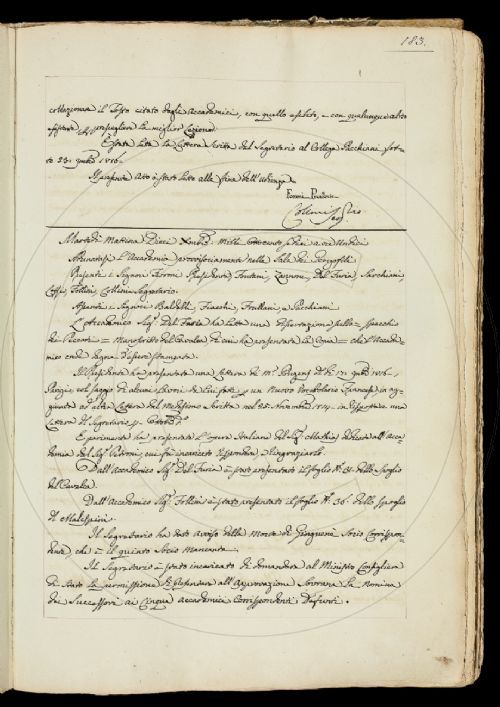 183.
collazionare il Testo citato dagli Accademici, con quello esibito, e con qualunque altro
esistente per scegliere la miglior Lezione.
È stata letta la Lettera scritta dal Segretario al Collega Sacchiani sot-
to 23. 9mbre 1816.
Il presente Atto è stato letto alla fine dell'Adunanza
Ferroni Presidente
Collini Segrio
Martedì Mattina Dieci Xmbre Mille Ottocento sedici a ore Undici
Adunatasi l'Accademia provvisoriamente nella Sala dei
Presenti i Signori Ferroni Presidente, Fontani, Zannoni, Del Furia, Sarchiani,
Lessi, Follini, Collini Segretario.
Assenti i Signori Baldelli, Fiacchi, Frullani, e Pacchiani
L'Accademico Sigr Del Furia ha letta una Dissertazione sullo = Specchi
di Peccati = Manoscritto del Cavalca di cui ha presentata la Copia = che l'Accade-
mico crede degna d'essere stampata.
Il Presidente ha presentata una Lettera di Mr. de' 17. 9mbre 1816.
Parigi col saggio di alcuni lavori da lui fatti per un Nuovo Vocabolario Francese, in ag-
giunta ad altra Lettera del Medesimo scritta nel 28. Novembre 1814. in risposta a una
Lettera del Segretario
E parimente ha presentate l'opere Italiane del Sigr Mathias dedicate all'Acca-
demia dal Sigr fu incaricato rispondere, e ringraziarlo.
Dall'Accademico Sigr Del Furia è stato presentato il foglio No. 31. dello Spoglio
del Cavalca.
Dall'Accademico Sigr Follini è stato presentato il foglio No. 36. dello spoglio
di Malespini.
Il Segretario ha dato avviso della Morte di Ginguené Socio Corrispon-
dente, che è il quinto Socio Mancante.
Il Segretario è stato incaricato di domandare al Ministro Consigliere
di Stato la permissione di presentare all'Approvazione Sovrana la nomina
dei Successori ai Cinque Accademici Corrispondenti Defunti.